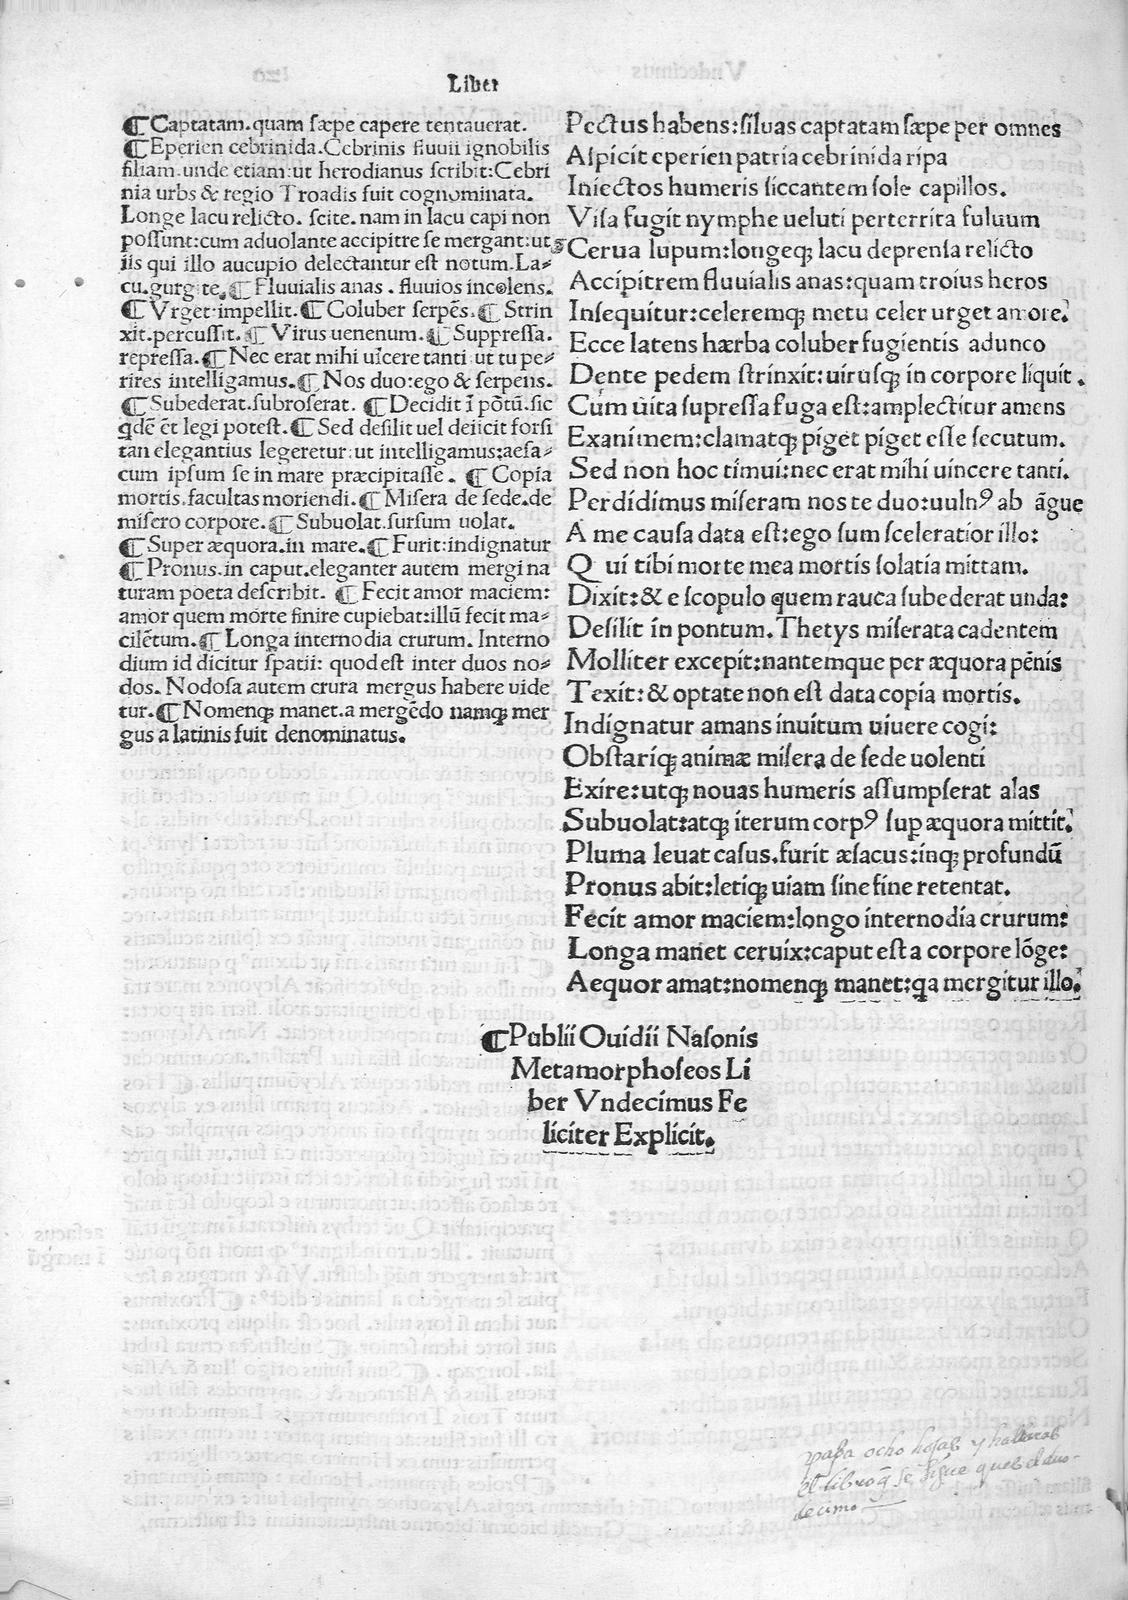 Liber
¶Captatam.quam sæpe capere tentauerat.
¶Eperien cebrinida.Cebrinis fluuii ignobilis
filiam.unde etiam:ut herodianus scribit:Cebri
nia urbs & regio Troadis fuit cognominata.
Longe lacu relicto. scite.nam in lacu capi non
possunt:cum aduolante accipitre se mergant:ut
iis qui illo aucupio delectantur est notum.La-
cu.gurgite.¶Fluuialis anas.fluuios incolens.
¶Vrget:impellit.¶Coluber serpēs.¶Strin
xit.percussit.¶Virus uenenum.¶Suppressa.
repressa.¶Nec erat mihi uicere tanti ut tu pe-
rires intelligamus.¶Nos duo:ego & serpens.
¶Subederat.subroserat. ¶Decidit ī pōtū.sic
qdē ēt legi potest.¶Sed desilit uel deiicit forsi
tan elegantius legeretur:ut intelligamus:aesa-
cum ipsum se in mare præcipitasse. ¶Copia
mortis.facultas moriendi.¶Misera de sede.de
misero corpore.¶Subuolat.sursum uolat.
¶Super æquora.in mare.¶Furit:indignatur
¶Pronus.in caput.eleganter autem mergi na
turam poeta describit. ¶Fecit amor maciem:
amor quem morte finire cupiebat:illū fecit ma-
cilētum.¶Longa internodia crurum. Interno
dium id dicitur spatii: quod est inter duos no-
dos. Nodosa autem crura mergus habere uide
tur.¶Nomenq; manet.a mergēdo namq; mer
gus a latinis fuit denominatus.
Pectus habens:siluas captatam sæpe per omnes
Aspicit eperien patria cebrinida ripa
Iniectos humeris siccantem sole capillos.
Visa fugit nymphe ueluti perterrita fuluum
Cerua lupum:longeq; lacu deprensa relicto
Accipitrem fluuialis anas:quam troius heros
Insequitur:celeremq; metu celer urget amore.
Ecce latens hærba coluber fugientis adunco
Dente pedem strinxit:uirusq; in corpore liquit.
Cum uita supressa fuga est:amplectitur amens
Exanimem:clamatq; piget piget esse secutum.
Sed non hoc timui:nec erat mihi uincere tanti.
Perdidimus miseram nos te duo:uulnꝰ ab āgue
A me causa data est:ego sum sceleratior illo:
Qui tibi morte mea mortis solatia mittam.
Dixit:& e scopulo quem rauca subederat unda:
Desilit in pontum. Thetys miserata cadentem
Molliter excepit:nantemque per æquora pēnis
Texit:& optate non est data copia mortis.
Indignatur amans inuitum uiuere cogi:
Obstariq; animæ misera de sede uolenti
Exire:utq; nouas humeris assumpserat alas
Subuolat:atq; iterum corpꝰ sup æquora mittit.
Pluma leuat casus.furit æsacus:inq; profundū
Pronus abit:letiq; uiam sine fine retentat.
Fecit amor maciem:longo internodia crurum:
Longa manet ceruix:caput est a corpore lōge:
Aequor amat:nomenq; manet:qa mergitur illo.
¶Publii Ouidii Nasonis
Metamorphoseos Li
ber Vndecimus Fe
liciter Explicit.
papa ocho hojas y hallaras
el libro q̄ se sigue ques el duo-
decimo